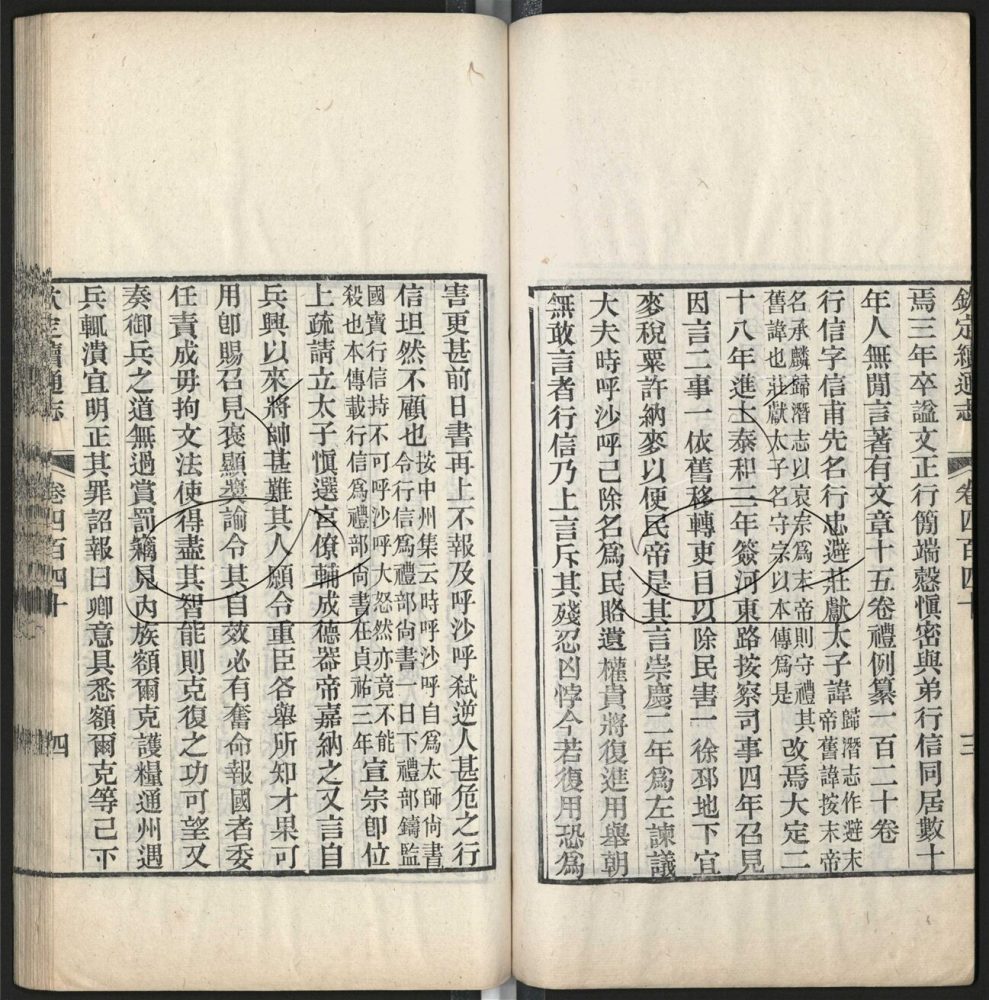 欽定續通志 卷四百四十 三
焉三年卒諡文正行簡端愨慎密與弟行信同居數十
年人無閒言著有文章十五卷禮例纂一百二十卷
行信字信甫先名行忠避莊獻太子諱歸潛志作避末帝舊諱按末帝
名承麟歸潛志以哀宗爲末帝則守禮其舊諱也莊獻太子名守宗以本傳爲是改焉大定二
十八年進士泰和三年簽河東路按察司事四年召見
因言二事一依舊移轉吏目以除民害一徐邳地下宜
麥稅粟許納麥以便民帝是其言崇慶二年爲左諫議
大夫時呼沙呼己除名爲民賂遺權貴將復進用舉朝
無敢言者行信乃上言斥其殘忍凶悖今若復用恐爲
害更甚前日書再上不報及呼沙呼弒逆人甚危之行
信坦然不顧也按中州集云時呼沙呼自爲太師尙書令行信爲禮部尙書一日下禮部鑄監
國寶行信持不可呼沙呼大怒然亦竟不能殺也本傳載行信爲禮部尙書在貞祐三年宣宗卽位
上疏請立太子愼選宮僚輔成德器帝嘉納之又言自
兵興以來將帥甚難其人願令重臣各舉所知才果可
用卽賜召見褒顯奬諭令其自效必有奮命報國者委
任責成毋拘文法使得盡其智能則克復之功可望又
奏御兵之道無過賞罰竊見內族額爾克護糧通州遇
兵輒潰宜明正其罪詔報曰卿意具悉額爾克等已下
欽定續通志 卷四百四十 四